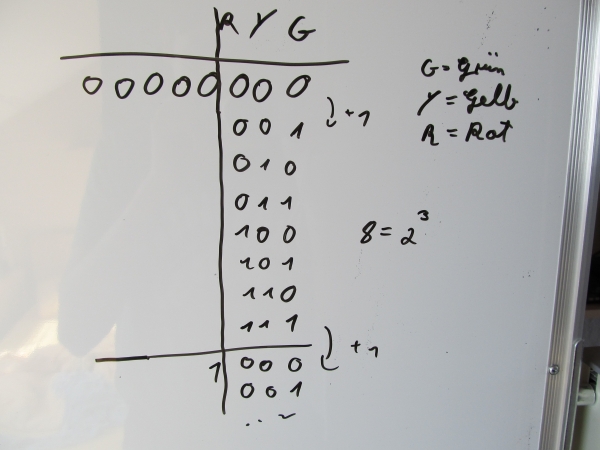 R Y G
0 0 0 0 0 0 0 0
+1
0 0 1
0 1 0
0 1 1
1 0 0
1 0 1
1 1 0
1 1 1
+1
1 0 0 0
0 0 1
...
G = Grün
Y = Gelb
R = Rot
8 = 2³